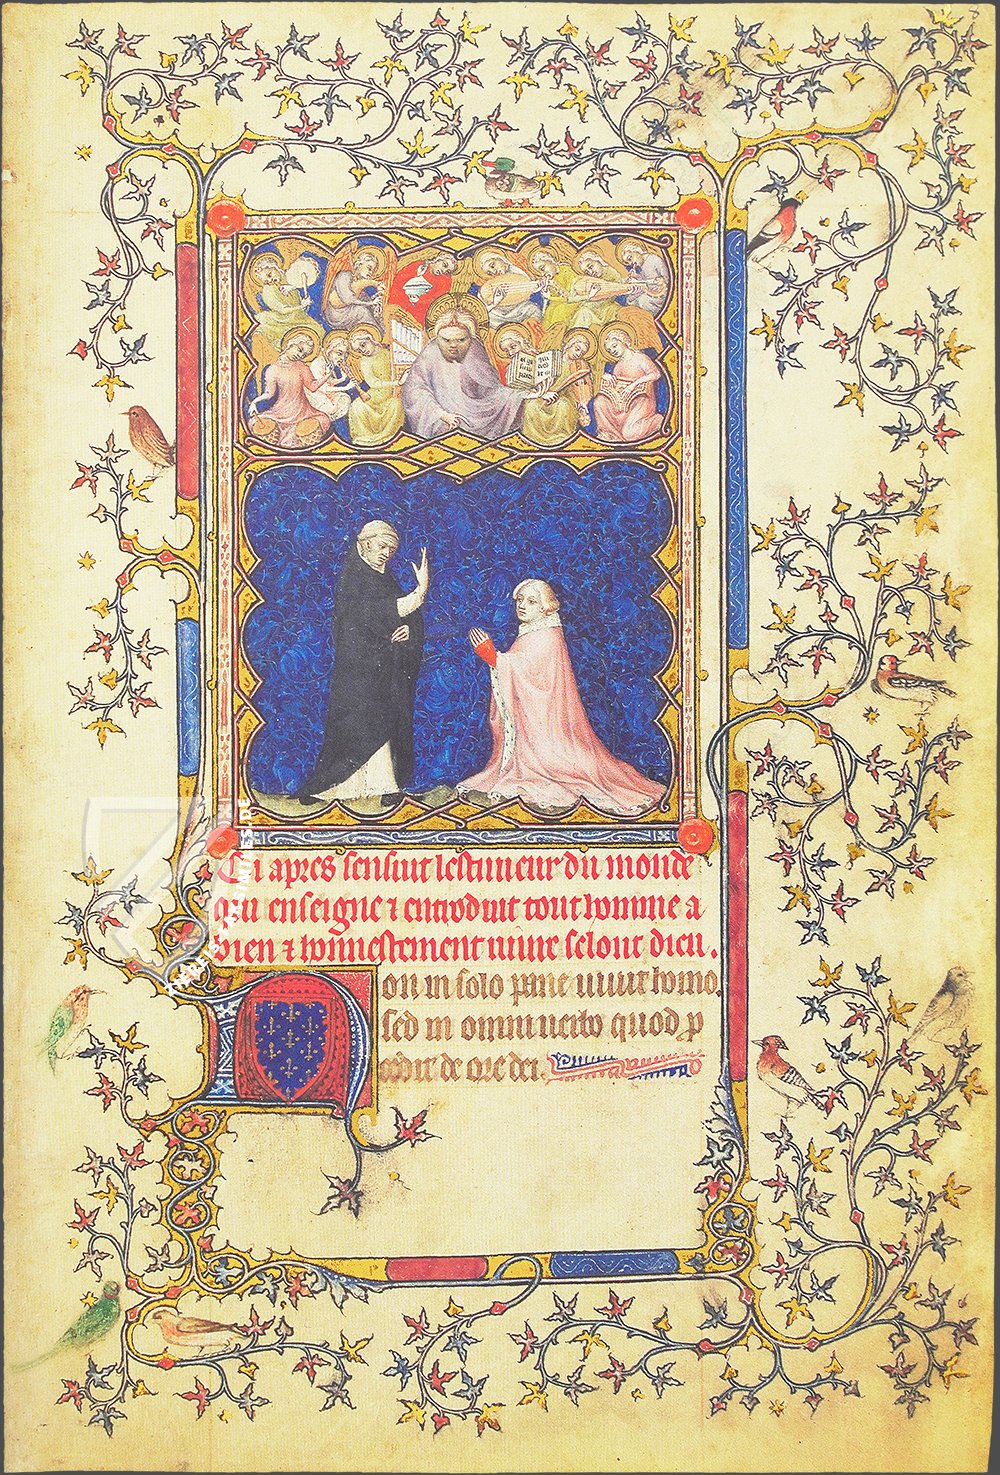 Ci apres sensuit lestimeur du monde
qui enseigne ⁊ introduit tout homme a
bien ⁊ honnestement uiure selonc dieu.
Non in solo pane uiuit homo.
sed in omni uerbo quod p
cedit de ore dei.